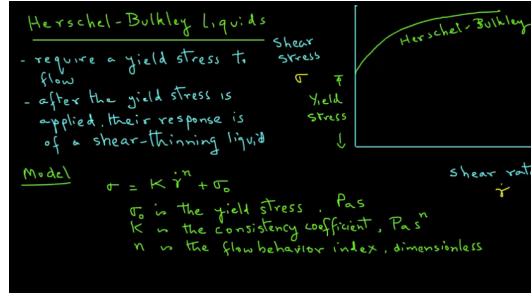 Herschel-Bulkley Liquids
- require a yield stress to
flow
- after the yield stress is
applied, their response is
of a shear-thinning liquid
Shear
stress
σ
Yield
stress
Herschel-Bulkley
Shear rat
γ̇
Model
σ = K γ̇ⁿ + σ₀
σ₀ is the yield stress, Pas
K is the consistency coefficient, Pasⁿ
n is the flow behavior index, dimensionless